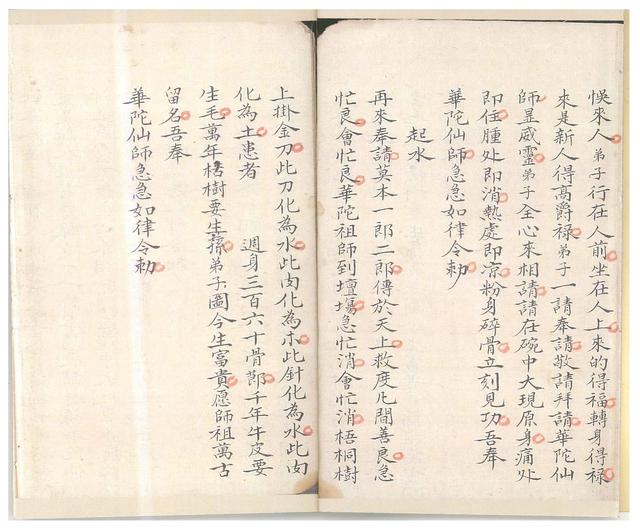 悮來人弟子行在人前坐在人上來的得福轉身得祿
來是新人得高爵祿弟子一請奉請敬請拜請華陀仙
師显威靈弟子全心來相請請在碗中大現原身痛处
即住腫处即消熱處即凉粉身碎骨立刻見功吾奉
華陀仙師急急如律令勅
起水
再來奉請莫本一郎二郎傳於天上救度凢間善良急
忙良會忙良華陀祖師到壇塲急忙消會忙消梧桐樹
上掛金刀此刀化為水此肉化為木此針化為水此肉
化為土患者 週身三百六十骨節千年牛皮要
生毛萬年枯樹要生蓀弟子圖今生富貴愿師祖萬古
留名吾奉
華陀仙師急急如律令勅